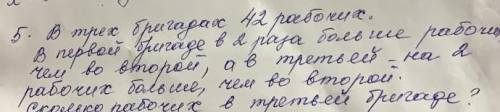 5. В трех бригадах 42 рабочих.
В первой бригаде в 2 раза больше рабочи
чем во второй, а в третьей - на 2
рабочих больше, чем во второй.
Сколько рабочих в третьей бригаде?